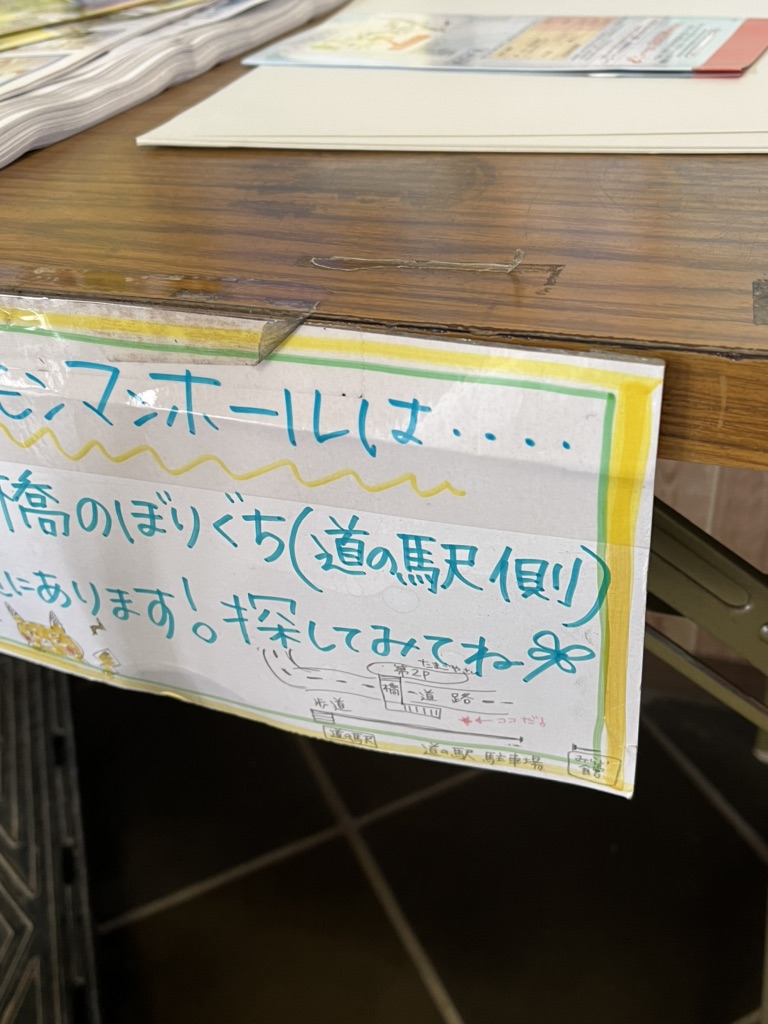 モンマンホールは‥‥
橋のぼりぐち(道の駅側)
にあります!。探してみてね
たまごやさん
第2P
橋 道路
歩道
ココだよ
道の駅
道の駅 駐車場